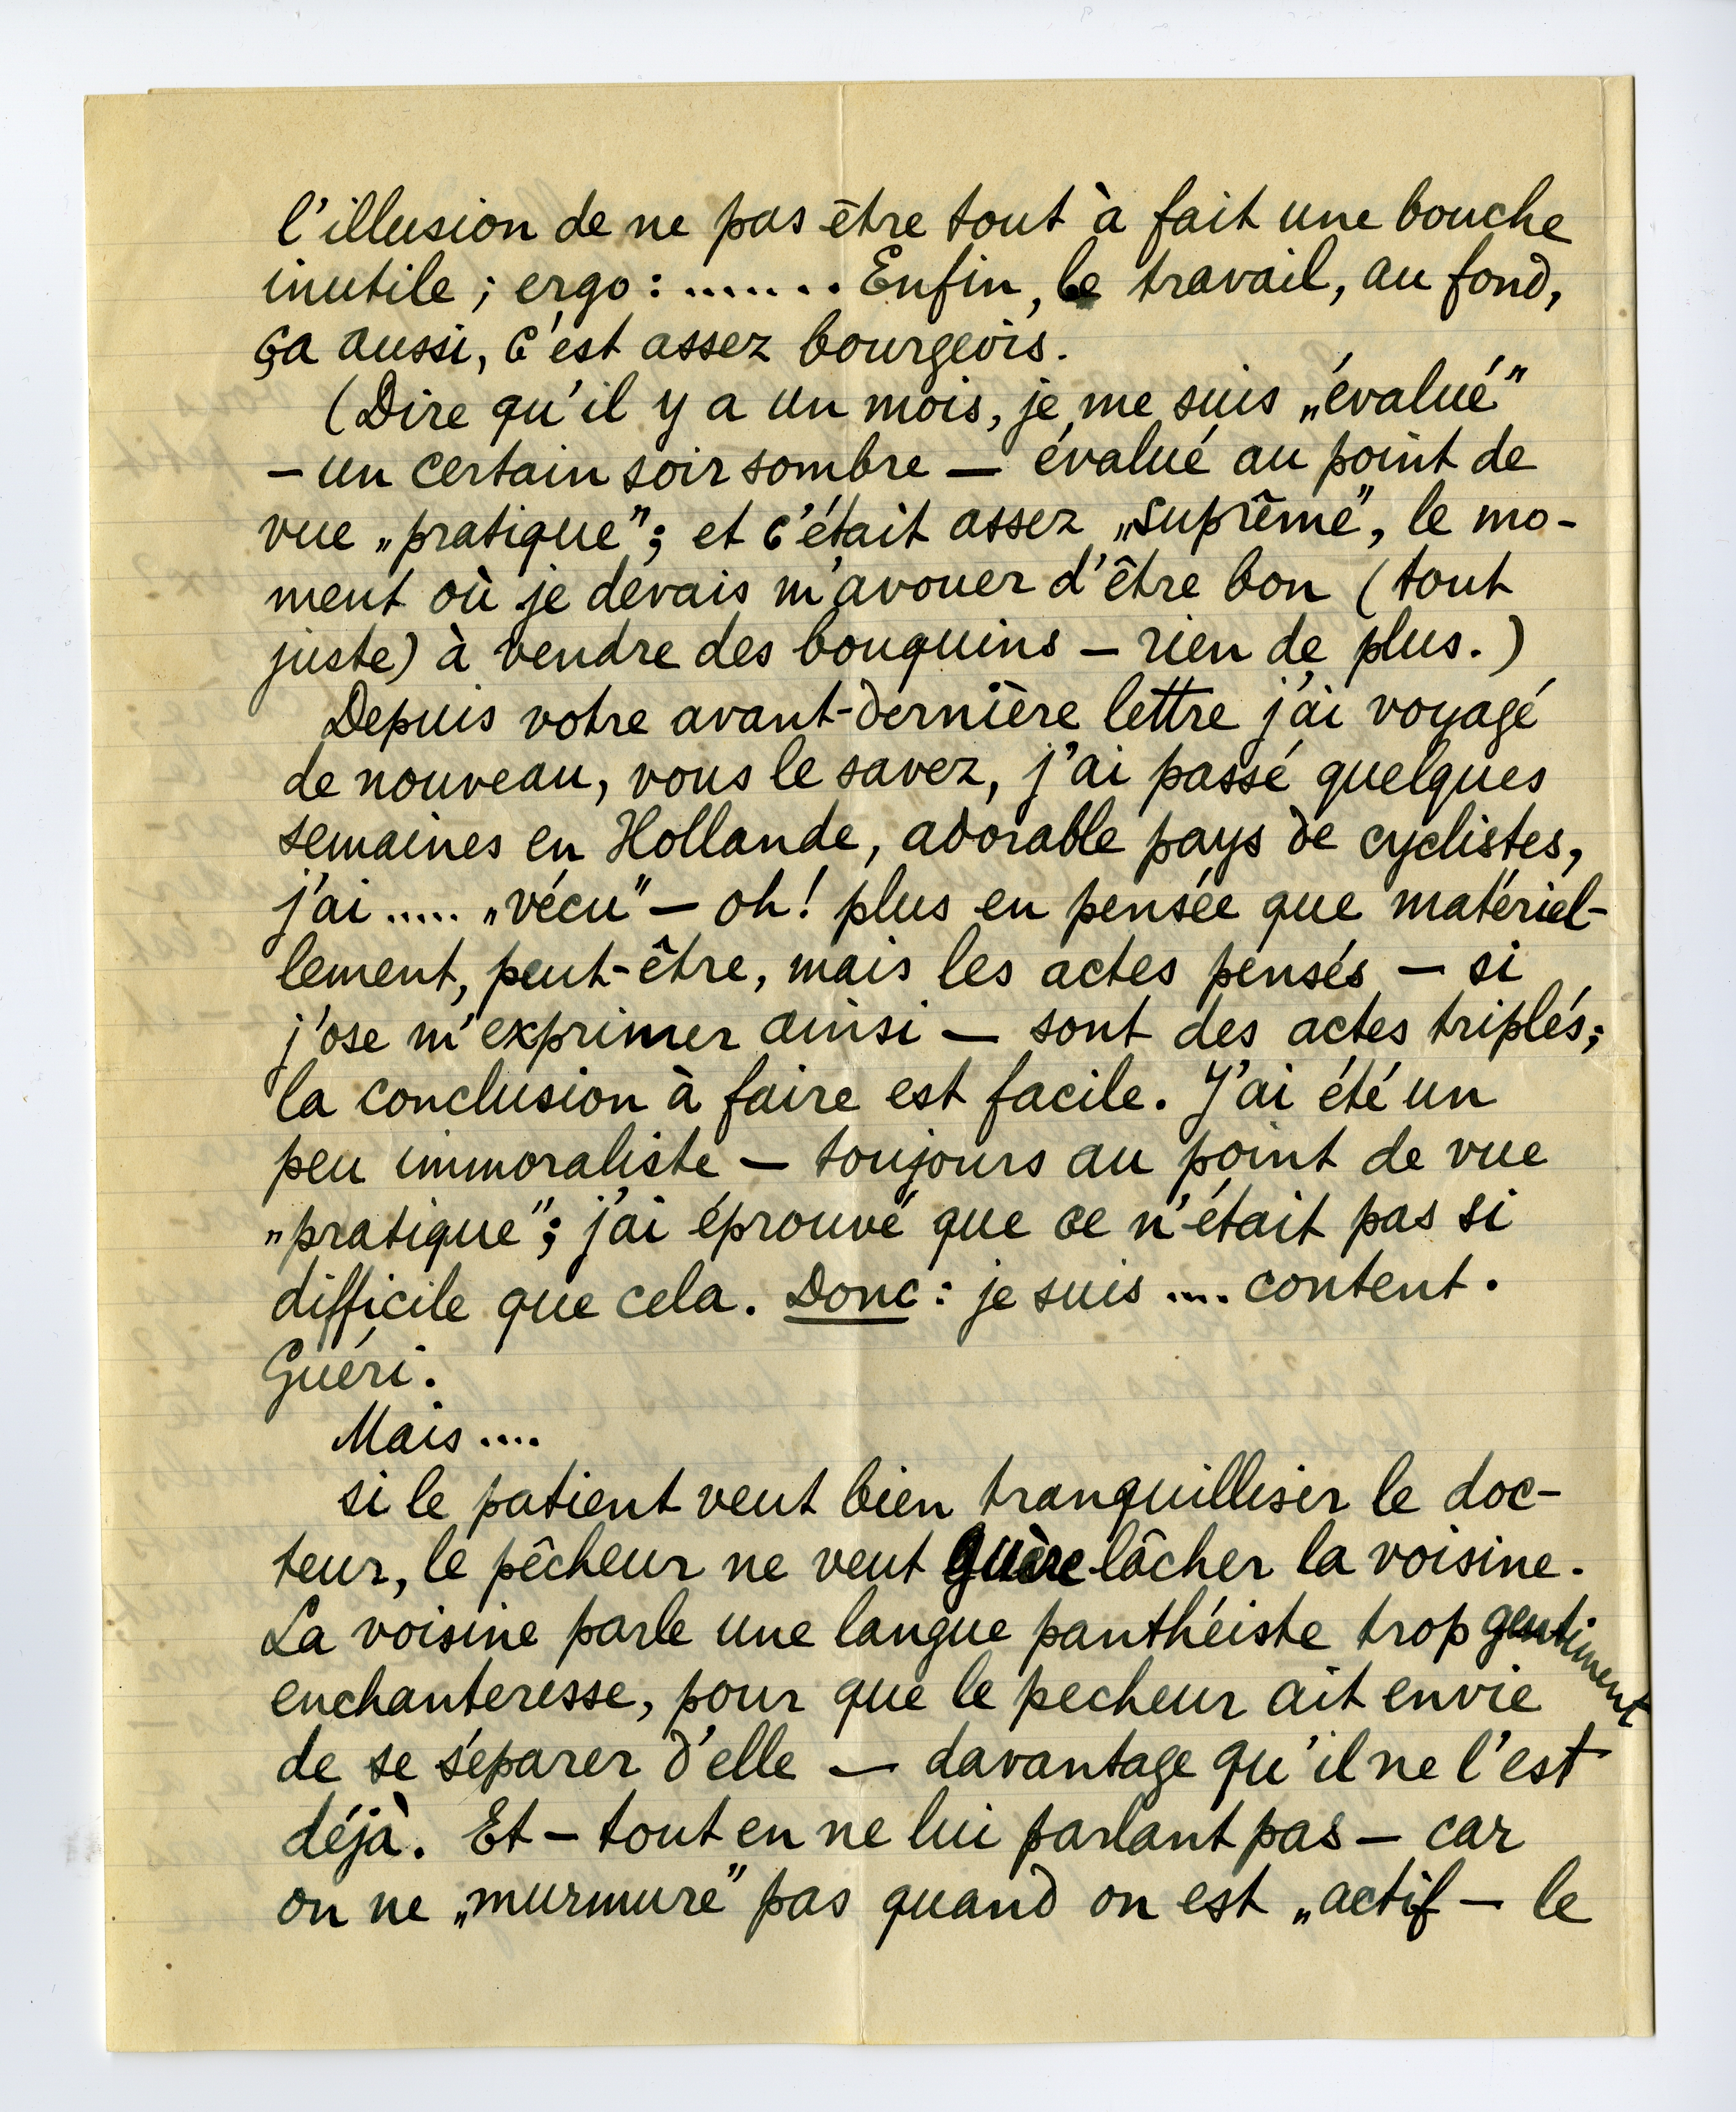 l'illusion de ne pas être tout à fait une bouche
inutile ; ergo : ....... Enfin, le travail, au fond,
ça aussi, c'est assez bourgeois.
(Dire qu'il y a un mois, je me suis „évalué”
— un certain soir sombre — évalué au point de
vue „pratique”; et c'était assez „suprême”, le mo-
ment où je devais m'avouer d'être bon (tout
juste) à vendre des bouquins — rien de plus.)
Depuis votre avant-dernière lettre j'ai voyagé
de nouveau, vous le savez, j'ai passé quelques
semaines en Hollande, adorable pays de cyclistes,
j'ai ..... „vécu” — oh! plus en pensée que matériel-
lement, peut-être, mais les actes pensés — si
j'ose m'exprimer ainsi — sont des actes triplés;
la conclusion à faire est facile. J'ai été un
peu immoraliste — toujours au point de vue
„pratique”; j'ai éprouvé que ce n'était pas si
difficile que cela. Donc : je suis .... content.
Guéri.
Mais ....
si le patient veut bien tranquilliser le doc-
teur, le pêcheur ne veut guère lâcher la voisine.
La voisine parle une langue panthéiste trop gentiment
enchanteresse, pour que le pecheur ait envie
de se séparer d'elle — davantage qu'il ne l'est
déjà. Et — tout en ne lui parlant pas — car
on ne „murmure” pas quand on est „actif — le